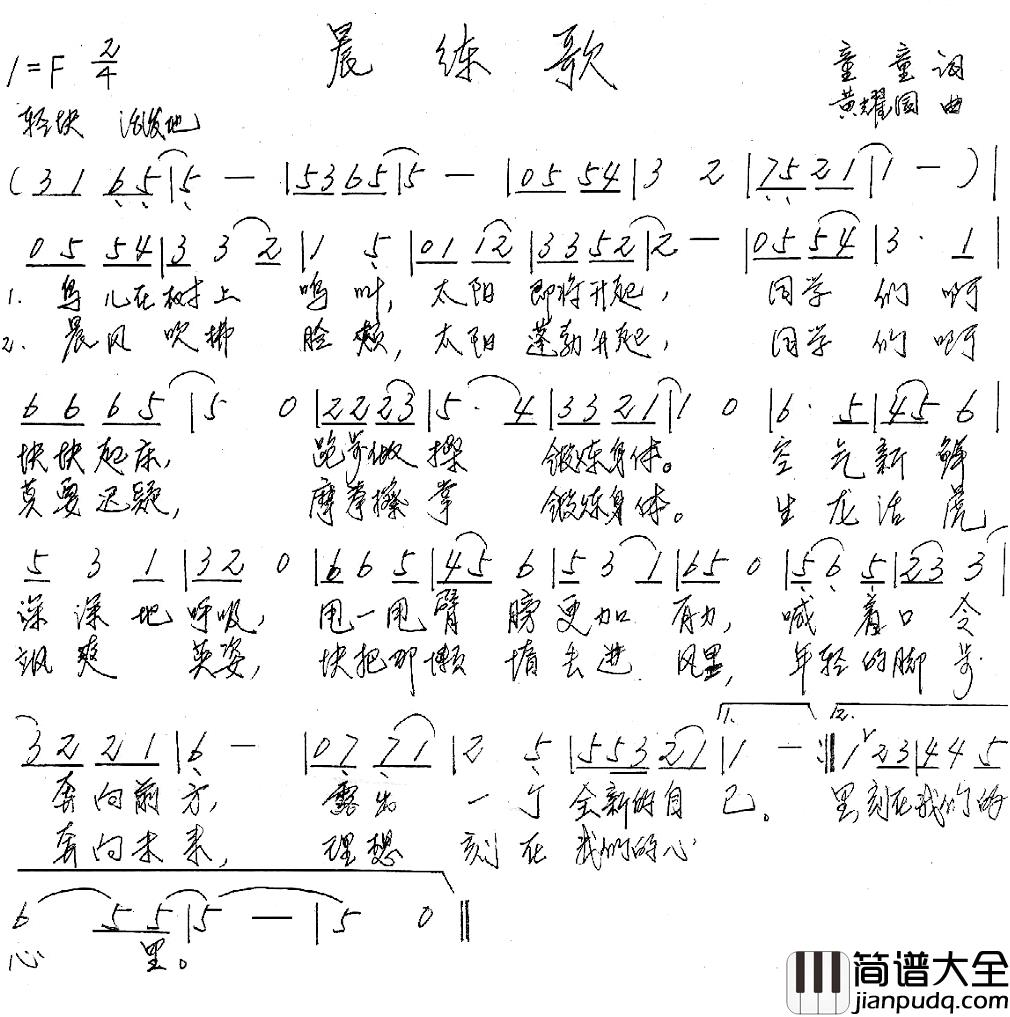 晨练歌
1=F 2/4
童童 词
黄耀国 曲
轻快 活泼地
(3 1 6 5 | 5 — | 5 3 6 5 | 5 — | 0 5 5 4 | 3 2 | 7 5 2 1 | 1 — ) |
0 5 5 4 | 3 3 2 | 1 5 | 0 1 1 2 | 3 3 5 2 | 2 — | 0 5 5 4 | 3 · 1 |
1. 鸟儿在树上 鸣叫, 太阳 即将升起, 同学 们 啊
2. 晨风吹拂 脸颊, 太阳 蓬勃升起, 同学 们 啊
6 6 6 5 | 5 0 | 2 2 2 3 | 5 · 4 | 3 3 2 1 | 1 0 | 6 · 5 | 4 5 6 |
快快起床, 跑步做操 锻炼身体。 空气新鲜
莫要迟疑, 摩拳擦掌 锻炼身体。 生龙活虎
5 3 1 | 3 2 0 | 6 6 5 | 4 5 6 | 5 3 1 | 6 5 0 | 5 6 5 | 2 3 3 |
深深地呼吸, 甩一甩臂膀更加有力, 喊着口令
飒爽 英姿, 快把那懒惰丢进风里, 年轻的脚步
1. 2.
3 2 2 1 | 6 — | 0 7 7 1 | 2 5 | 5 5 3 2 1 | 1 — :‖ 1 2 3 | 4 4 5
奔向前方, 露出 一个全新的自己。 里刻在我们的
奔向未来, 理想 刻在我们的心
6 5 5 | 5 — | 5 0 ‖
心 里。
简谱大全
jianpudq.com